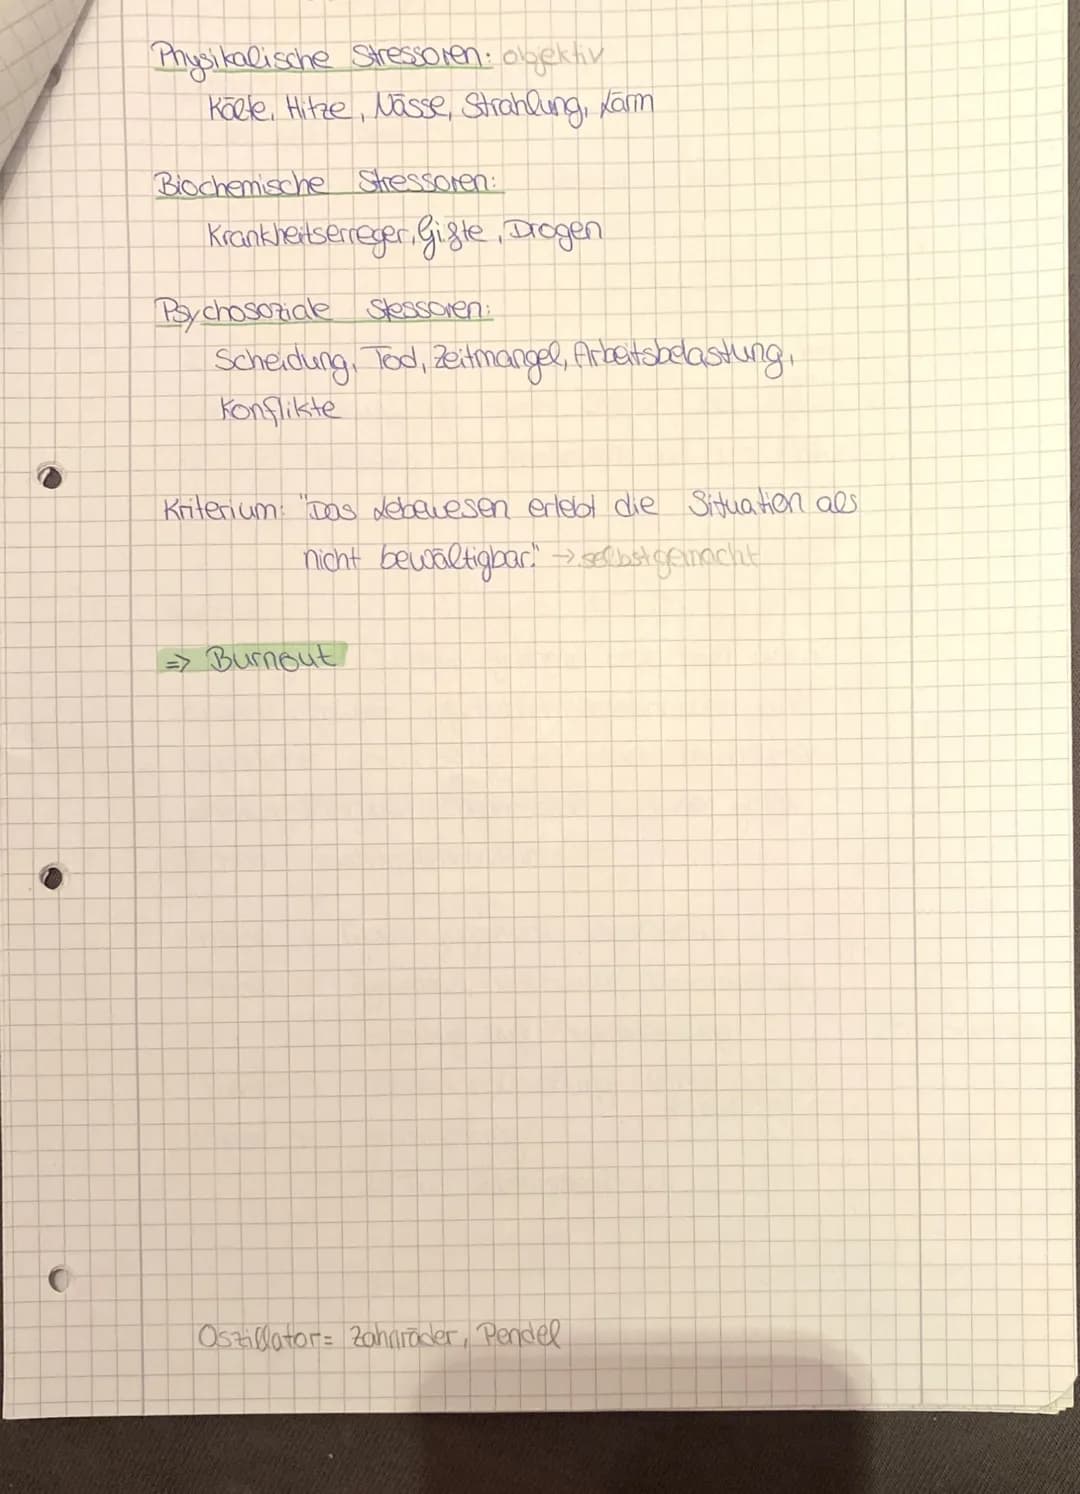 Physikalische Stressoren: objektiv
Kälte, Hitze, Nässe, Strahlung, Lärm
Biochemische Stressoren:
Krankheitserreger, Gifte, Drogen
Psychosoziale Stessoren:
Scheidung, Tod, Zeitmangel, Arbeitsbelastung,
Konflikte
Kriterium: "Das Lebewesen erlebt die Situation als
nicht bewältigbar." → selbstgemacht
=> Burnout
Oszillator= Zahnräder, Pendel